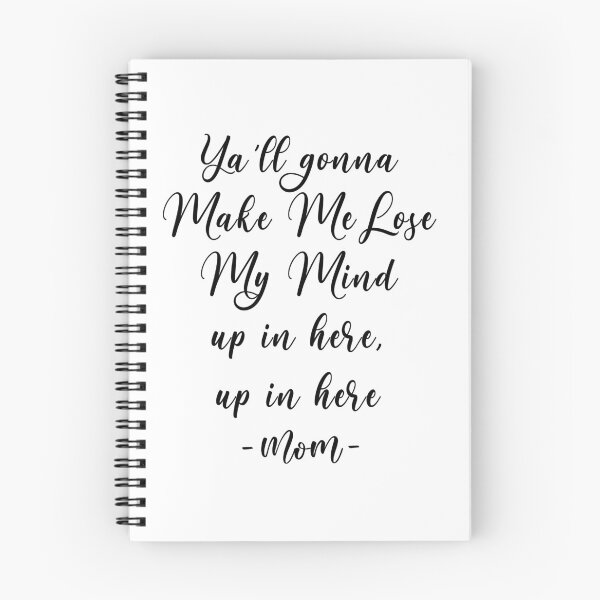 Ya'll gonna
Make Me Lose
My Mind
up in here,
up in here
-Mom-